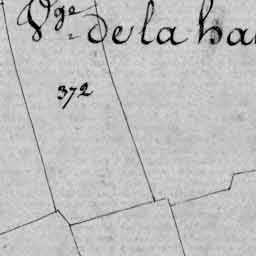 Vge de la ha
372